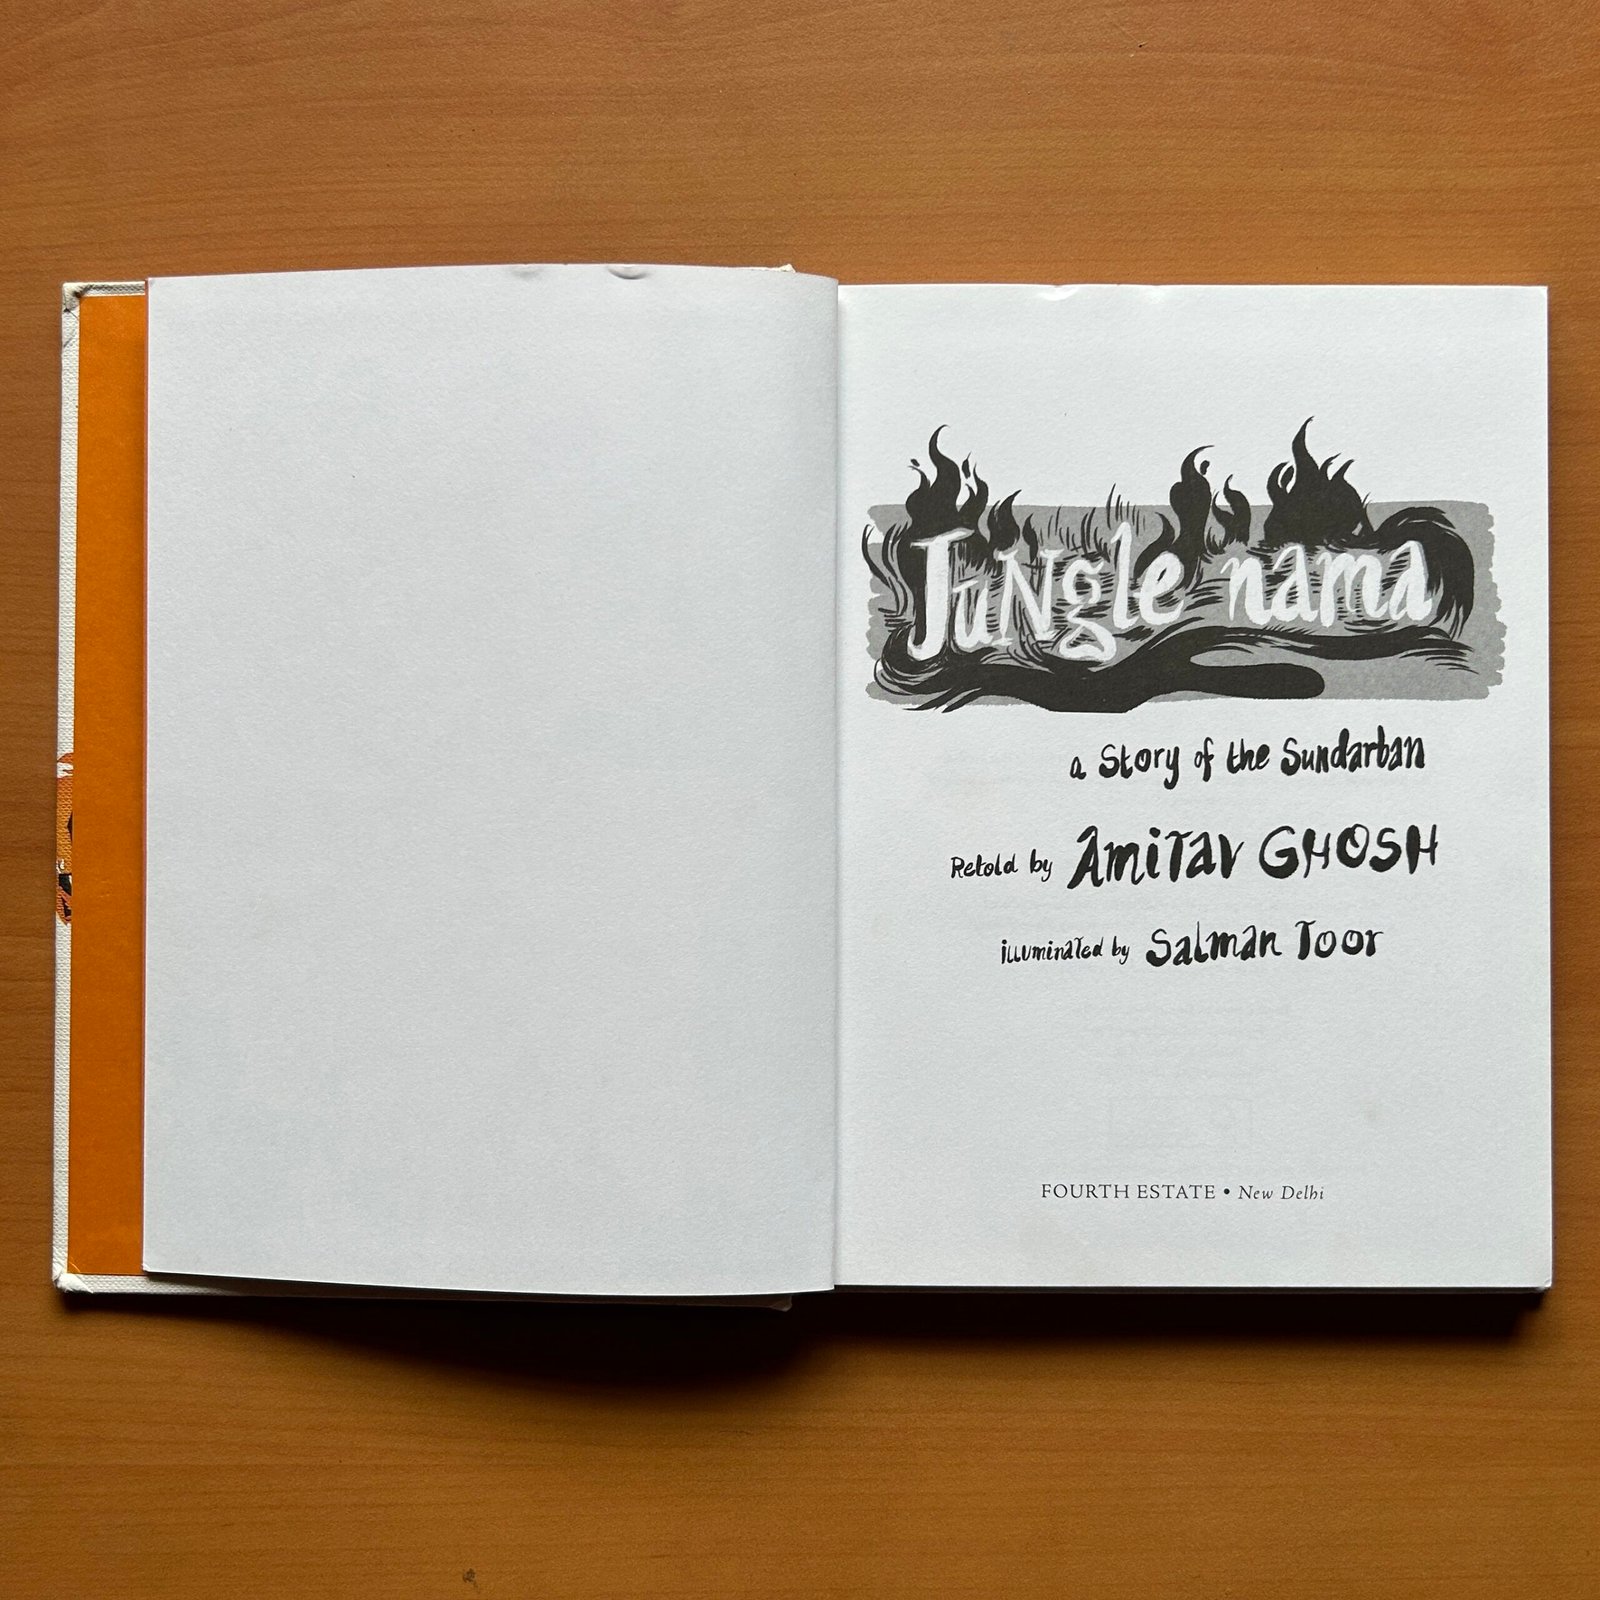 Jungle nama
a Story of the Sundarban
Retold by Amitav GHOSH
illuminated by Salman Toor
FOURTH ESTATE • New Delhi